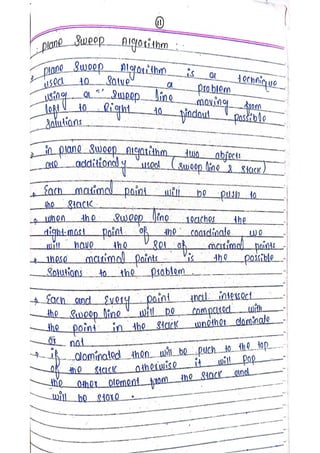 11
Plane Sweep Algorithm :
Plane Sweep Algorithm is a technique
used to solve a problem
using a "Sweep line moving from
left to Right to findout possible
solutions
in plane sweep Algorithm two objects
are additionaly used (sweep line & stack)
Each maximal point will be push to
the stack
when the sweep line reaches the
right-most point of the coordinate we
will have the set of maximal points
these maximal points is the possible
solutions to the problem
Each and Every point that intersect
the sweep line will be compared with
the point in the stack whether dominate
or not
if dominated then will be push to the top
of the stack otherwise it will pop
the other element from the stack and
will be store .